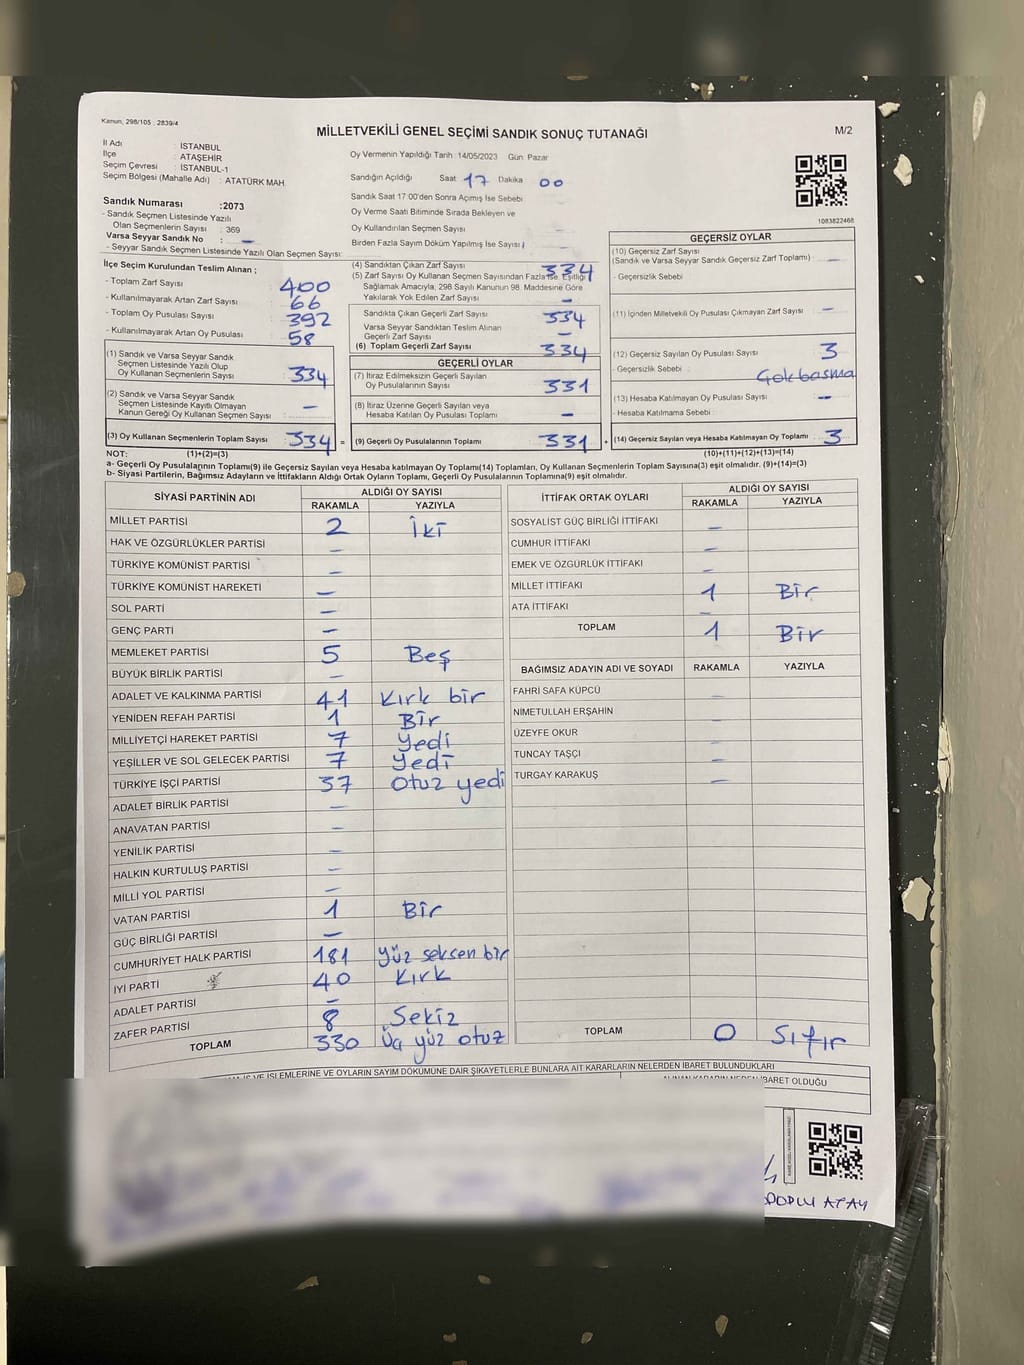 Kanun, 298/105 , 2839/4
MİLLETVEKİLİ GENEL SEÇİMİ SANDIK SONUÇ TUTANAĞI
M/2
İl Adı : İSTANBUL
İlçe : ATAŞEHİR
Seçim Çevresi : İSTANBUL-1
Seçim Bölgesi (Mahalle Adı) : ATATÜRK MAH.
Sandık Numarası :2073
- Sandık Seçmen Listesinde Yazılı
Olan Seçmenlerin Sayısı : 369
Varsa Seyyar Sandık No : –
- Seyyar Sandık Seçmen Listesinde Yazılı Olan Seçmen Sayısı:
Oy Vermenin Yapıldığı Tarih :14/05/2023 Gün Pazar
Sandığın Açıldığı Saat 17 Dakika 00
Sandık Saat 17:00'den Sonra Açımış İse Sebebi –
Oy Verme Saati Bitiminde Sırada Bekleyen ve
Oy Kullandırılan Seçmen Sayısı –
Birden Fazla Sayım Döküm Yapılmış İse Sayısı –
1083822468
İlçe Seçim Kurulundan Teslim Alınan ;
- Toplam Zarf Sayısı 400
- Kullanılmayarak Artan Zarf Sayısı 66
- Toplam Oy Pusulası Sayısı 392
- Kullanılmayarak Artan Oy Pusulası 58
(1) Sandık ve Varsa Seyyar Sandık
Seçmen Listesinde Yazılı Olup
Oy Kullanan Seçmenlerin Sayısı 334
(2) Sandık ve Varsa Seyyar Sandık
Seçmen Listesinde Kayıtlı Olmayan
Kanun Gereği Oy Kullanan Seçmen Sayısı –
(3) Oy Kullanan Seçmenlerin Toplam Sayısı 334 =
(4) Sandıktan Çıkan Zarf Sayısı 334
(5) Zarf Sayısı Oy Kullanan Seçmen Sayısından Fazla İse, Eşitliği
Sağlamak Amacıyla, 298 Sayılı Kanunun 98. Maddesine Göre
Yakılarak Yok Edilen Zarf Sayısı –
Sandıkta Çıkan Geçerli Zarf Sayısı 334
Varsa Seyyar Sandıktan Teslim Alınan
Geçerli Zarf Sayısı –
(6) Toplam Geçerli Zarf Sayısı 334
GEÇERLİ OYLAR
(7) İtiraz Edilmeksizin Geçerli Sayılan
Oy Pusulalarının Sayısı 331
(8) İtiraz Üzerine Geçerli Sayılan veya
Hesaba Katılan Oy Pusulası Toplamı –
(9) Geçerli Oy Pusulalarının Toplamı 331 +
GEÇERSİZ OYLAR
(10) Geçersiz Zarf Sayısı
(Sandık ve Varsa Seyyar Sandık Geçersiz Zarf Toplamı) –
- Geçersizlik Sebebi
(11) İçinden Milletvekili Oy Pusulası Çıkmayan Zarf Sayısı –
(12) Geçersiz Sayılan Oy Pusulası Sayısı 3
- Geçersizlik Sebebi Çok basma
(13) Hesaba Katılmayan Oy Pusulası Sayısı –
- Hesaba Katılmama Sebebi
(14) Geçersiz Sayılan veya Hesaba Katılmayan Oy Toplamı 3
NOT: (1)+(2)=(3) (10)+(11)+(12)+(13)=(14)
a- Geçerli Oy Pusulalarının Toplamı(9) ile Geçersiz Sayılan veya Hesaba katılmayan Oy Toplamı(14) Toplamları, Oy Kullanan Seçmenlerin Toplam Sayısına(3) eşit olmalıdır. (9)+(14)=(3)
b- Siyasi Partilerin, Bağımsız Adayların ve İttifakların Aldığı Ortak Oyların Toplamı, Geçerli Oy Pusulalarının Toplamına(9) eşit olmalıdır.
SİYASİ PARTİNİN ADI ALDIĞI OY SAYISI
RAKAMLA YAZIYLA
MİLLET PARTİSİ 2 İki
HAK VE ÖZGÜRLÜKLER PARTİSİ –
TÜRKİYE KOMÜNİST PARTİSİ –
TÜRKİYE KOMÜNİST HAREKETİ –
SOL PARTİ –
GENÇ PARTİ –
MEMLEKET PARTİSİ 5 Beş
BÜYÜK BİRLİK PARTİSİ –
ADALET VE KALKINMA PARTİSİ 41 Kırk bir
YENİDEN REFAH PARTİSİ 1 Bir
MİLLİYETÇİ HAREKET PARTİSİ 7 Yedi
YEŞİLLER VE SOL GELECEK PARTİSİ 7 Yedi
TÜRKİYE İŞÇİ PARTİSİ 37 Otuz yedi
ADALET BİRLİK PARTİSİ –
ANAVATAN PARTİSİ –
YENİLİK PARTİSİ –
HALKIN KURTULUŞ PARTİSİ –
MİLLİ YOL PARTİSİ –
VATAN PARTİSİ 1 Bir
GÜÇ BİRLİĞİ PARTİSİ –
CUMHURİYET HALK PARTİSİ 181 Yüz seksen bir
İYİ PARTİ 40 Kırk
ADALET PARTİSİ –
ZAFER PARTİSİ 8 Sekiz
TOPLAM 330 Üç yüz otuz
İTTİFAK ORTAK OYLARI ALDIĞI OY SAYISI
RAKAMLA YAZIYLA
SOSYALİST GÜÇ BİRLİĞİ İTTİFAKI –
CUMHUR İTTİFAKI –
EMEK VE ÖZGÜRLÜK İTTİFAKI –
MİLLET İTTİFAKI 1 Bir
ATA İTTİFAKI –
TOPLAM 1 Bir
BAĞIMSIZ ADAYIN ADI VE SOYADI RAKAMLA YAZIYLA
FAHRİ SAFA KÜPCÜ –
NİMETULLAH ERŞAHİN –
ÜZEYFE OKUR –
TUNCAY TAŞÇI –
TURGAY KARAKUŞ –
TOPLAM 0 Sıfır
İŞ VE İŞLEMLERİNE VE OYLARIN SAYIM DÖKÜMÜNE DAİR ŞİKAYETLERLE BUNLARA AİT KARARLARIN NELERDEN İBARET BULUNDUKLARI
ALINAN KARARIN NEDEN İBARET OLDUĞU
ATAY